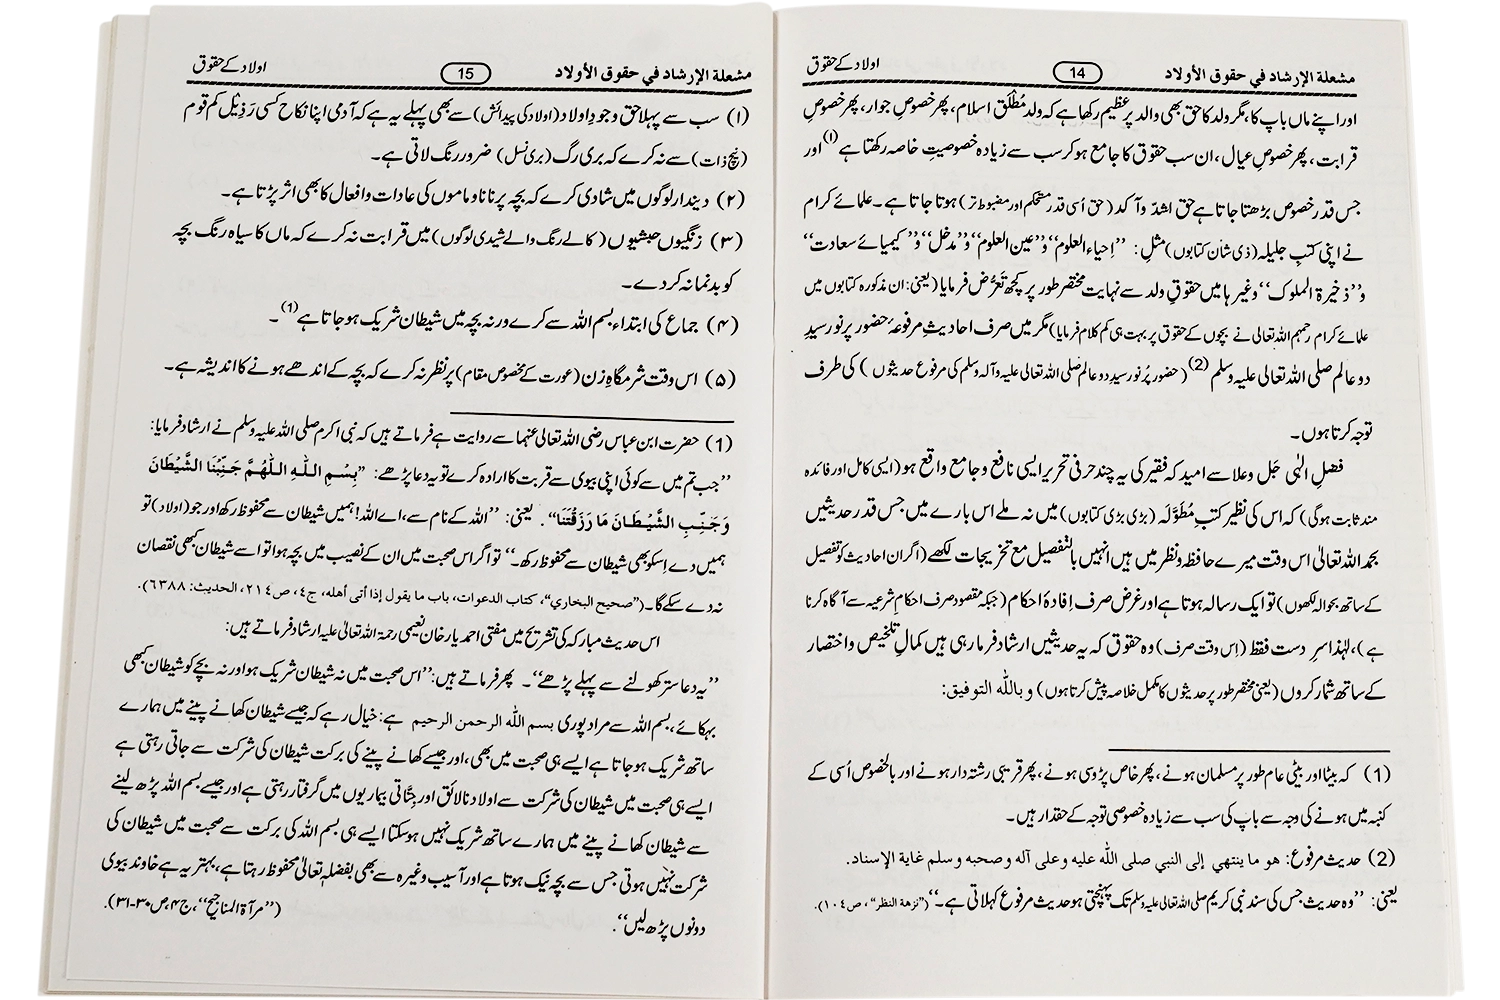 مشعلة الإرشاد في حقوق الأولاد 14 اولاد کے حقوق
اور اپنے ماں باپ کا، مگر ولد کا حق بھی والد پر عظیم رکھا ہے کہ ولد مُطْلَق اسلام، پھر خصوصِ جوار، پھر خصوصِ
قرابت، پھر خصوصِ عیال، ان سب حقوق کا جامع ہو کر سب سے زیادہ خصوصیتِ خاصہ رکھتا ہے (۱) اور
جس قدر خصوص بڑھتا جاتا ہے حق اشدّ و آکد (حق اُسی قدر مستحکم اور مضبوط تر) ہوتا جاتا ہے۔ علمائے کرام
نے اپنی کتب جلیلہ (ذی شان کتابوں) مثلِ: ’’اِحیاء العلوم‘‘ و’’عین العلوم‘‘ و’’مدخل‘‘ و’’کیمیائے سعادت‘‘
و’’ذخیرۃ الملوک‘‘ وغیرہا میں حقوقِ ولد سے نہایت مختصر طور پر کچھ تعَرُّض فرمایا (یعنی: ان مذکورہ کتابوں میں
علمائے کرام رحمہم اللہ تعالی نے بچوں کے حقوق پر بہت ہی کم کلام فرمایا) مگر میں صرف احادیثِ مرفوعۂ حضور پر نور سیدِ
دو عالم صلی اللہ تعالی علیہ وسلم (2) (حضور پُر نور سیدِ دو عالم صلی اللہ تعالی علیہ وآلہ وسلم کی مرفوع حدیثوں) کی طرف
توجہ کرتا ہوں۔
فضلِ الٰہی جَل وعلا سے امید کہ فقیر کی یہ چند حرفی تحریر ایسی نافع و جامع واقع ہو (ایسی کامل اور فائدہ
مند ثابت ہوگی) کہ اس کی نظیر کتبِ مُطوَّلَہ (بڑی بڑی کتابوں) میں نہ ملے اس بارے میں جس قدر حدیثیں
بحمد اللہ تعالیٰ اس وقت میرے حافظہ و نظر میں ہیں انہیں بالتفصیل مع تخریجات لکھے (اگر ان احادیث کو تفصیل
کے ساتھ بحوالہ لکھوں) تو ایک رسالہ ہوتا ہے اور غرض صرف اِفادۂ احکام (جبکہ مقصود صرف احکامِ شرعیہ سے آگاہ کرنا
ہے)، لہٰذا سرِ دست فقط (اِس وقت صرف) وہ حقوق کہ یہ حدیثیں ارشاد فرما رہی ہیں کمالِ تلخیص و اختصار
کے ساتھ شمار کروں (یعنی مختصر طور پر حدیثوں کا مکمل خلاصہ پیش کرتا ہوں) وبالله التوفيق:
(1) کہ بیٹا اور بیٹی عام طور پر مسلمان ہونے، پھر خاص پڑوسی ہونے، پھر قریبی رشتہ دار ہونے اور بالخصوص اُسی کے
کنبہ میں ہونے کی وجہ سے باپ کی سب سے زیادہ خصوصی توجہ کے حقدار ہیں۔
(2) حدیث مرفوع: هو ما ينتهي إلى النبي صلى الله عليه وعلى آله وصحبه وسلم غاية الإسناد.
یعنی: ’’وہ حدیث جس کی سند نبی کریم صلی اللہ تعالی علیہ وسلم تک پہنچتی ہو حدیث مرفوع کہلاتی ہے۔‘‘ (’’نزهة النظر‘‘، ص ۱۰٤).
مشعلة الإرشاد في حقوق الأولاد 15 اولاد کے حقوق
(۱) سب سے پہلا حق وجودِ اولاد (اولاد کی پیدائش) سے بھی پہلے یہ ہے کہ آدمی اپنا نکاح کسی رَذِیل کم قوم
(نیچ ذات) سے نہ کرے کہ بری رگ (بری نسل) ضرور رنگ لاتی ہے۔
(۲) دیندار لوگوں میں شادی کرے کہ بچہ پر نانا و ماموں کی عادات و افعال کا بھی اثر پڑتا ہے۔
(۳) زنگیوں حبشیوں (کالے رنگ والے شیدی لوگوں) میں قرابت نہ کرے کہ ماں کا سیاہ رنگ بچہ
کو بدنما نہ کر دے۔
(۴) جماع کی ابتداء بسم اللہ سے کرے ورنہ بچہ میں شیطان شریک ہو جاتا ہے (1)۔
(۵) اس وقت شرمگاہِ زن (عورت کے مخصوص مقام) پر نظر نہ کرے کہ بچہ کے اندھے ہونے کا اندیشہ ہے۔
(1) حضرت ابن عباس رضی اللہ تعالی عنہما سے روایت ہے فرماتے ہیں کہ نبی اکرم صلی اللہ علیہ وسلم نے ارشاد فرمایا:
’’جب تم میں سے کوئی اپنی بیوی سے قربت کا ارادہ کرے تو یہ دعا پڑھے: ’’بِسْمِ اللهِ اللّٰهُمَّ جَنِّبْنَا الشَّيْطَانَ
وَجَنِّبِ الشَّيْطَانَ مَا رَزَقْتَنَا‘‘. یعنی: ’’اللہ کے نام سے، اے اللہ! ہمیں شیطان سے محفوظ رکھ اور جو (اولاد) تو
ہمیں دے اِسکو بھی شیطان سے محفوظ رکھ۔‘‘ تو اگر اس صحبت میں ان کے نصیب میں بچہ ہوا تو اسے شیطان کبھی نقصان
نہ دے سکے گا۔ (’’صحيح البخاري‘‘، كتاب الدعوات، باب ما يقول إذا أتى أهله، ج٤، ص٢١٤، الحديث: ٦٣٨٨).
اس حدیث مبارکہ کی تشریح میں مفتی احمد یار خان نعیمی رحمۃ اللہ تعالیٰ علیہ ارشاد فرماتے ہیں:
’’یہ دعا ستر کھولنے سے پہلے پڑھے‘‘۔ پھر فرماتے ہیں: ’’اس صحبت میں نہ شیطان شریک ہو اور نہ بچے کو شیطان کبھی
بہکائے، بسم اللہ سے مراد پوری بسم الله الرحمن الرحيم ہے: خیال رہے کہ جیسے شیطان کھانے پینے میں ہمارے
ساتھ شریک ہو جاتا ہے ایسے ہی صحبت میں بھی، اور جیسے کھانے پینے کی برکت شیطان کی شرکت سے جاتی رہتی ہے
ایسے ہی صحبت میں شیطان کی شرکت سے اولاد نالائق اور جِنّاتی بیماریوں میں گرفتار رہتی ہے اور جیسے بسم اللہ پڑھ لینے
سے شیطان کھانے پینے میں ہمارے ساتھ شریک نہیں ہو سکتا ایسے ہی بسم اللہ کی برکت سے صحبت میں شیطان کی
شرکت نہیں ہوتی جس سے بچہ نیک ہوتا ہے اور آسیب وغیرہ سے بھی بفضلہٖ تعالیٰ محفوظ رہتا ہے، بہتر یہ ہے خاوند بیوی
دونوں پڑھ لیں‘‘. (’’مرآۃ المناجیح‘‘، ج۴، ص۳۰-۳۱).